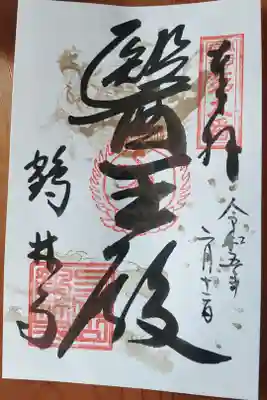 奉拝
令和五年
二月十二日
醫王殿
鶴林寺